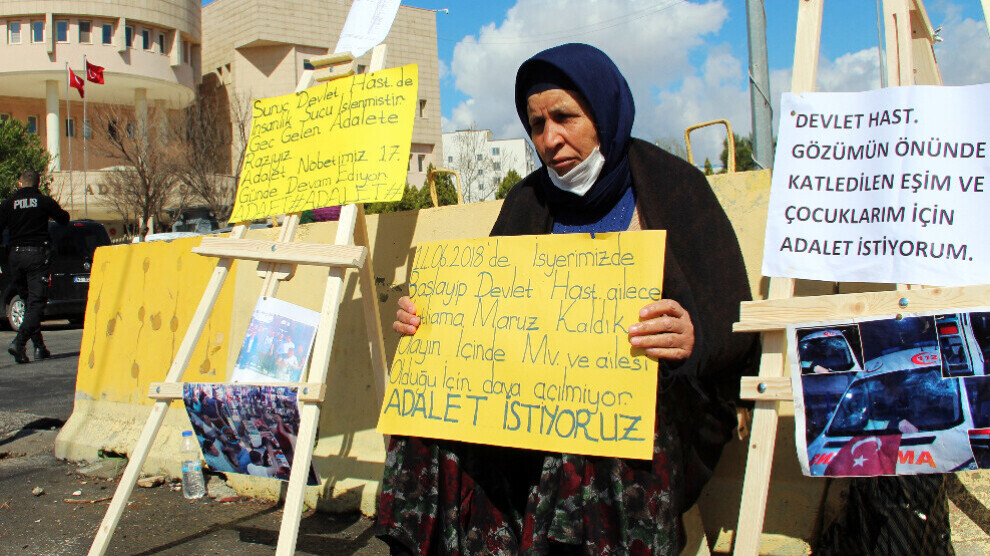 POLİS
Suruç Devlet Hast. de
insanlık Suçu İşlenmiştir
Geç Gelen Adalete
Razıyız
Adalet Nöbetimiz 17.
Günde Devam Ediyor
ADALET #ADALET#
.06.2018'de İşyerimizde
Başlayıp Devlet Hast. ailece
Maruz Kaldık
Olayın İçinde Mv. ve ailesi
Olduğu İçin dava açılmıyor
ADALET İSTİYORUZ
DEVLET HAST.
GÖZÜMÜN ÖNÜNDE
KATLEDİLEN EŞİM VE
ÇOCUKLARIM İÇİN
ADALET İSTİYORUM.
112